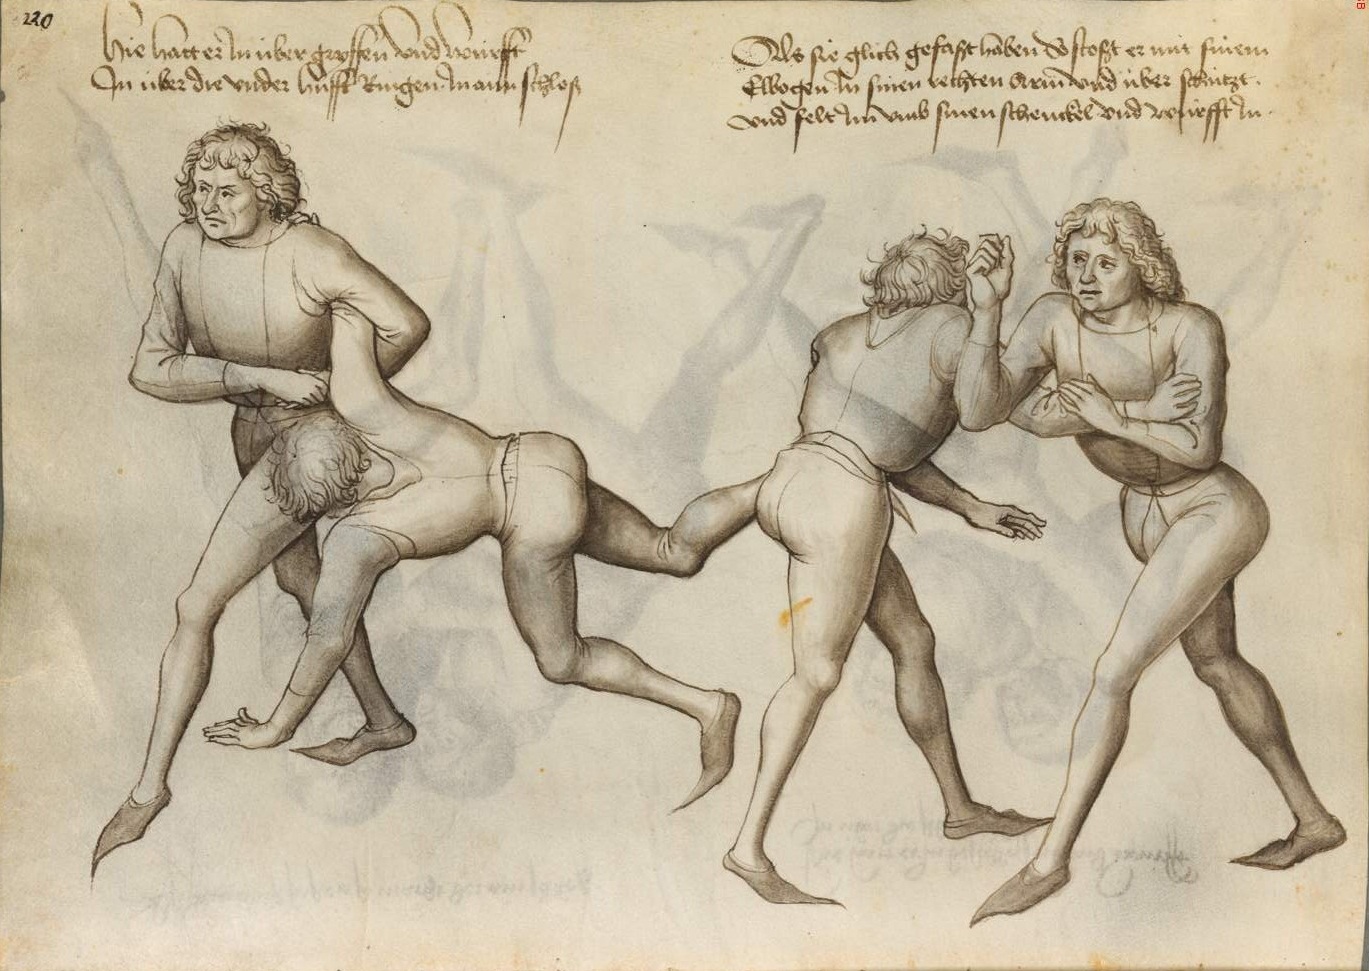 120
Hie hatt er In über gryffen und würfft
In über die under hüfft Ringen In ain schloß
Als sie glich gefaßt haben So stoßt er mit sinem
Elbogen In sinen rechten Arm und über schützt.
und felt Im umb sinen schenckel und würfft In.